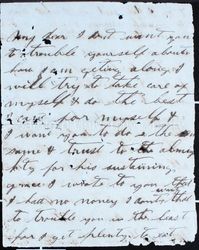 my dear I dont want you
to trouble yourself about
how I am getting along I
will try to take care of
myself & do the best
I can for myself &
I want you to do the
same & trust to the almig
hty for his sustaining
grace I wrote to you that
I had no money I wrote that
to trouble you in the least
for I get plenty to eat